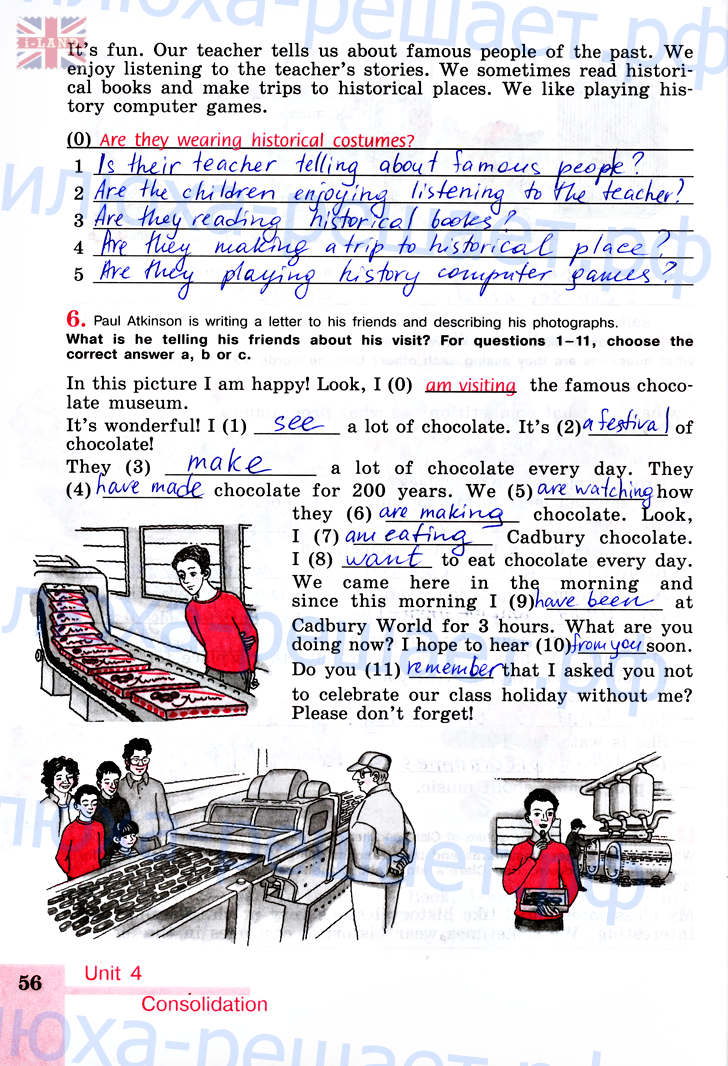 i-LAND
It's fun. Our teacher tells us about famous people of the past. We
enjoy listening to the teacher's stories. We sometimes read histori-
cal books and make trips to historical places. We like playing his-
tory computer games.
(0) Are they wearing historical costumes?
1 Is their teacher telling about famous people?
2 Are the children enjoying listening to the teacher?
3 Are they reading historical books?
4 Are they making a trip to historical place?
5 Are they playing history computer games?
6. Paul Atkinson is writing a letter to his friends and describing his photographs.
What is he telling his friends about his visit? For questions 1–11, choose the
correct answer a, b or c.
In this picture I am happy! Look, I (0) am visiting the famous choco-
late museum.
It's wonderful! I (1) see a lot of chocolate. It's (2) a festival of
chocolate!
They (3) make a lot of chocolate every day. They
(4) have made chocolate for 200 years. We (5) are watching how
they (6) are making chocolate. Look,
I (7) am eating Cadbury chocolate.
I (8) want to eat chocolate every day.
We came here in the morning and
since this morning I (9) have been at
Cadbury World for 3 hours. What are you
doing now? I hope to hear (10) from you soon.
Do you (11) remember that I asked you not
to celebrate our class holiday without me?
Please don't forget!
56
Unit 4
Consolidation